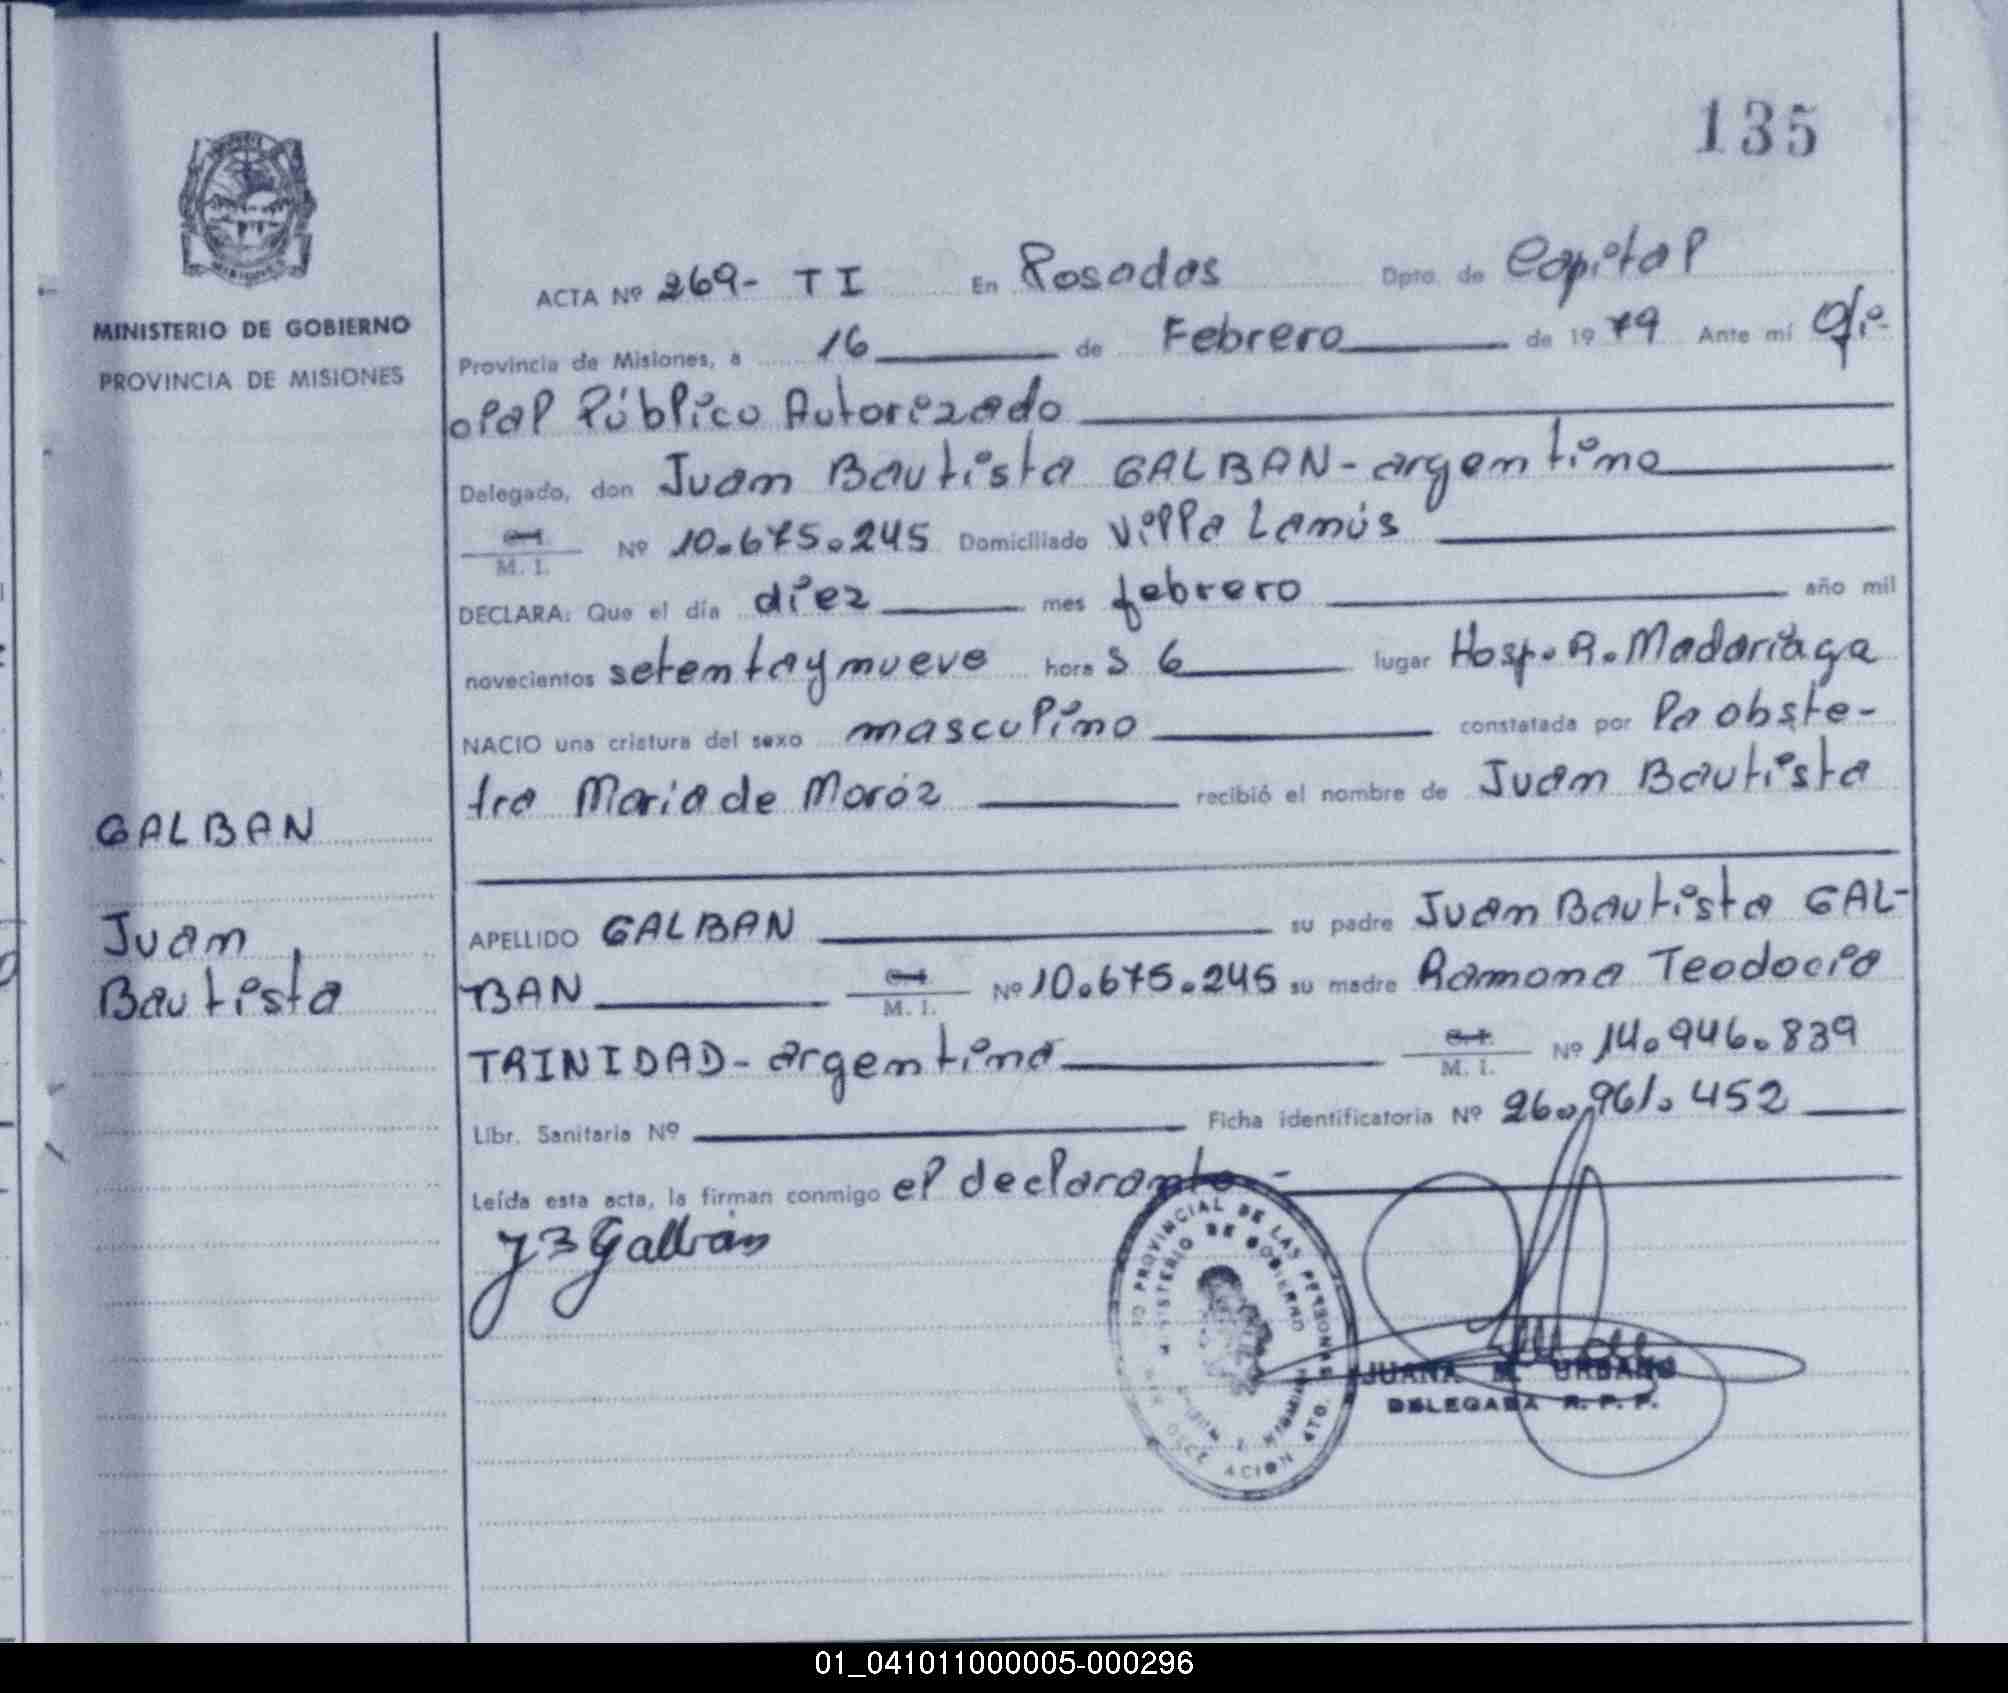 135
MINISTERIO DE GOBIERNO
PROVINCIA DE MISIONES
ACTA Nº 269- TI En Posadas Dpto. de Capital
Provincia de Misiones, a 16 de Febrero de 1979 Ante mí Ofi-
cial Público Autorizado
Delegado, don Juan Bautista GALBAN - argentino
C.I. M. I. Nº 10.675.245 Domiciliado Villa Lanús
DECLARA: Que el día diez mes febrero año mil
novecientos setenta y nueve hora s 6 lugar Hosp. R. Madariaga
NACIO una criatura del sexo masculino constatada por la obste-
tra Maria de Moróz recibió el nombre de Juan Bautista
GALBAN
Juan
Bautista
APELLIDO GALBAN su padre Juan Bautista GAL-
BAN C.I. M. I. Nº 10.675.245 su madre Ramona Teodocia
TRINIDAD - argentina C.I. M. I. Nº 14.946.839
Libr. Sanitaria Nº Ficha identificatoria Nº 26.961.452
Leída esta acta, la firman conmigo el declarante -
J B Galbán
PROVINCIAL DE LAS PERSONAS
MINISTERIO DE GOBIERNO
JUANA M. URBANO
DELEGADA R. P. P.
01_041011000005-000296